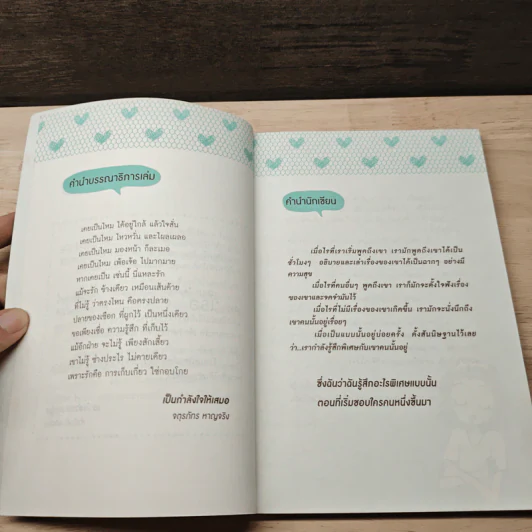 คำนำบรรณาธิการเล่ม
เคยเป็นไหม ได้อยู่ใกล้ แล้วใจสั่น
เคยเป็นไหม ไหวหวั่น และโมเลเลอ
เคยเป็นไหม มองหน้า ก็ละเมอ
เคยเป็นไหม เพ้อเจ้อ ไปมากมาย
หากเคยเป็น เช่นนี้ นี่แหละรัก
แม้จะรัก ข้างเดียว เหมือนเส้นด้าย
ที่ไม่รู้ ว่าตรงไหน คือตรงปลาย
ปลายของเชือก ที่ผูกไว้ เป็นหนึ่งเดียว
ขอเพียงเชื่อ ความรู้สึก ที่เก็บไว้
แม้อีกฝ่าย จะไม่รู้ เพียงสักเสี้ยว
เขาไม่รู้ ช่างประไร ไม่คายเคียว
เพราะรักคือ การเก็บเกี่ยว ใช่กอบโกย
เป็นกำลังใจให้เสมอ
จตุรภัทร หาญจริง
คำนำนักเขียน
เมื่อไรที่เราเริ่มพูดถึงเขา เรามักพูดถึงเขาได้เป็น
ชั่วโมงๆ อธิบายและเล่าเรื่องของเขาได้เป็นฉากๆ อย่างมี
ความสุข
เมื่อไรที่คนอื่นๆ พูดถึงเขา เราก็มักจะตั้งใจฟังเรื่อง
ของเขาและจดจำมันไว้
เมื่อไรที่ไม่มีเรื่องของเขาเกิดขึ้น เราก็มักจะนั่งนึกถึง
เขาคนนั้นอยู่เรื่อยๆ
เมื่อเป็นแบบนั้นอยู่บ่อยครั้ง ตั้งสันนิษฐานไว้เลย
ว่า...เรากำลังรู้สึกพิเศษกับเขาคนนั้นอยู่
ซึ่งฉันว่าฉันรู้สึกอะไรพิเศษแบบนั้น
ตอนที่เริ่มชอบใครคนหนึ่งขึ้นมา